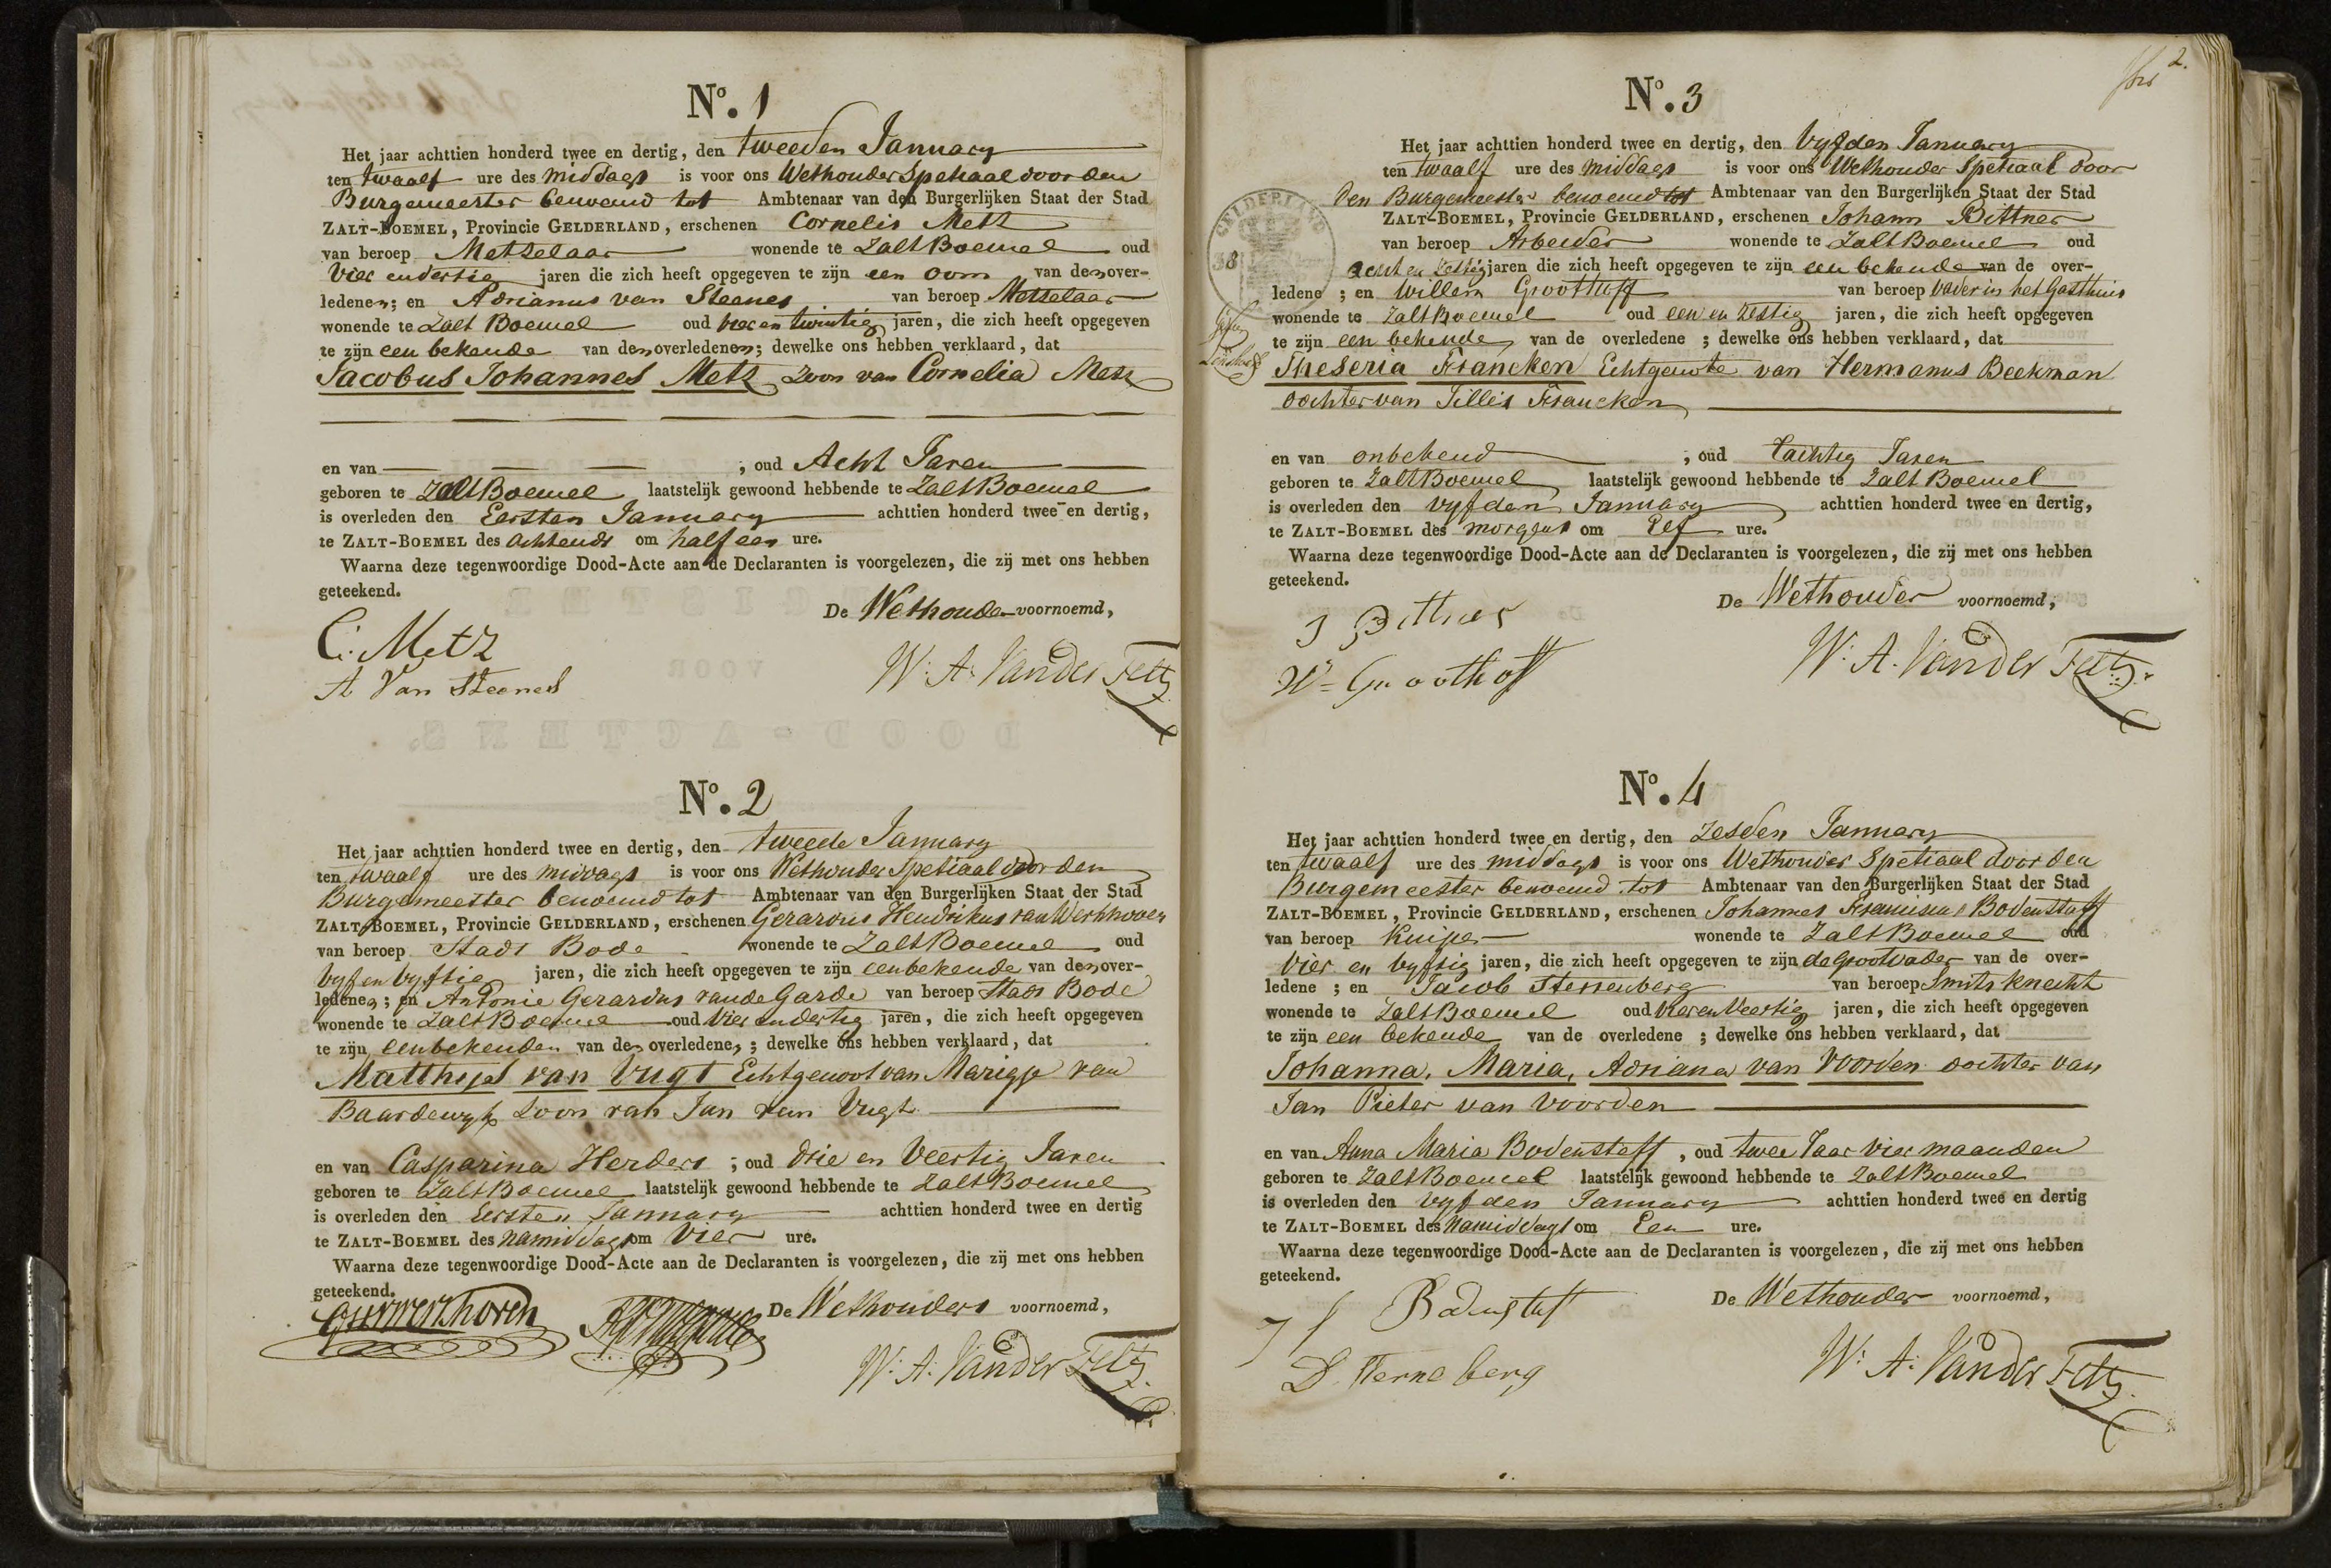 No. 1
Het jaar achttien honderd twee en dertig, den tweeden January
ten twaalf ure des middags is voor ons Wethouder Spetiaal door den
Burgemeester benoemd tot Ambtenaar van den Burgerlijken Staat der Stad
ZALT-BOEMEL, Provincie GELDERLAND, erschenen Cornelis Metz
van beroep Metzelaar wonende te Zalt Boemel oud
Vier en dertig jaren die zich heeft opgegeven te zijn een oom van den over-
ledenen; en Adrianus van Steenes van beroep Metzelaar
wonende te Zalt Boemel oud vier en twintig jaren, die zich heeft opgegeven
te zijn een bekende van den overledenen; dewelke ons hebben verklaard, dat
Jacobus Johannes Metz Zoon van Cornelia Metz
en van , oud Acht Jaren
geboren te Zalt Boemel laatstelijk gewoond hebbende te Zalt Boemel
is overleden den Eersten January achttien honderd twee en dertig,
te ZALT-BOEMEL des achtends om half een ure.
Waarna deze tegenwoordige Dood-Acte aan de Declaranten is voorgelezen, die zij met ons hebben
geteekend.
De Wethouder voornoemd,
C: Metz
A Van Steenes
W: A: Vander Feltz
No. 2
Het jaar achttien honderd twee en dertig, den tweede January
ten twaalf ure des middags is voor ons Wethouder Spetiaal door den
Burgemeester benoemd tot Ambtenaar van den Burgerlijken Staat der Stad
ZALT-BOEMEL, Provincie GELDERLAND, erschenen Gerardus Hendrikus van Werkhoven
van beroep Stads Bode wonende te Zalt Boemel oud
Vyf en Vyftig jaren, die zich heeft opgegeven te zijn een bekende van den over-
ledenen; en Antonie Gerardus van de Garde van beroep Stads Bode
wonende te Zalt Boemel oud Vier en dertig jaren, die zich heeft opgegeven
te zijn een bekenden van den overledenen; dewelke ons hebben verklaard, dat
Matthijs van Vugt Echtgenoot van Marigje van
Baardewyk Zoon van Jan van Vugt
en van Casparina Herders ; oud drie en Veertig Jaren
geboren te Zalt Boemel laatstelijk gewoond hebbende te Zalt Boemel
is overleden den Eersten January achttien honderd twee en dertig
te ZALT-BOEMEL des namiddags om Vier ure.
Waarna deze tegenwoordige Dood-Acte aan de Declaranten is voorgelezen, die zij met ons hebben
geteekend.
De Wethouders voornoemd,
GHVWerkhoven
W: A: Vander Feltz.
2.
No. 3
Het jaar achttien honderd twee en dertig, den Vyfden January
ten twaalf ure des middags is voor ons Wethouder Spetiaal door
den Burgemeester benoemd tot Ambtenaar van den Burgerlijken Staat der Stad
ZALT-BOEMEL, Provincie GELDERLAND, erschenen Johann Bittner
van beroep Arbeider wonende te Zalt Boemel oud
acht en Zestig jaren die zich heeft opgegeven te zijn een bekende van de over-
ledene ; en Willem Groothoff van beroep Vader in het Gasthuis
wonende te Zalt Boemel oud een en zestig jaren, die zich heeft opgegeven
te zijn een bekende van de overledene ; dewelke ons hebben verklaard, dat
Theseria Francken Echtgenote van Hermanus Beekman
dochter van Tillis Francken
en van onbekend ; oud tachtig Jaren
geboren te Zalt Boemel laatstelijk gewoond hebbende te Zalt Boemel
is overleden den vyfden January achttien honderd twee en dertig,
te ZALT-BOEMEL des morgens om Elf ure.
Waarna deze tegenwoordige Dood-Acte aan de Declaranten is voorgelezen, die zij met ons hebben
geteekend.
De Wethouder voornoemd,
J Bittner
Wm Groothoff
W: A. Vander Feltz.
GELDERLAND
38
No. 4
Het jaar achttien honderd twee en dertig, den zesden January
ten twaalf ure des middags is voor ons Wethouder Spetiaal door den
Burgemeester benoemd tot Ambtenaar van den Burgerlijken Staat der Stad
ZALT-BOEMEL, Provincie GELDERLAND, erschenen Johannes Franciscus Bodenstaff
van beroep Kuiper wonende te Zalt Boemel oud
Vier en vyftig jaren, die zich heeft opgegeven te zijn de Grootvader van de over-
ledene ; en Jacob Sterrenberg van beroep Smits knecht
wonende te Zalt Boemel oud vier en Veertig jaren, die zich heeft opgegeven
te zijn een bekende van de overledene ; dewelke ons hebben verklaard, dat
Johanna, Maria, Adriana van Voorden dochter van
Jan Pieter van Voorden
en van Anna Maria Bodenstaff , oud twee Jaar vier maanden
geboren te Zalt Boemel laatstelijk gewoond hebbende te Zalt Boemel
is overleden den vyfden January achttien honderd twee en dertig
te ZALT-BOEMEL des namiddags om Een ure.
Waarna deze tegenwoordige Dood-Acte aan de Declaranten is voorgelezen, die zij met ons hebben
geteekend.
De Wethouder voornoemd,
J f Bodenstaf
D. Sterneberg
W: A: Vander Feltz.